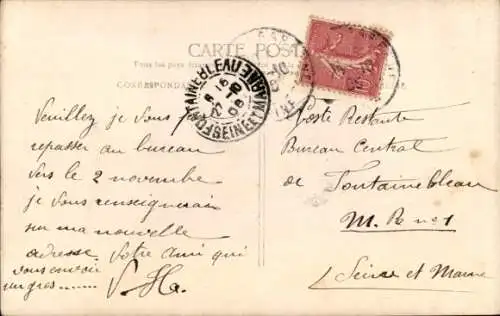 CARTE POSTALE
Tous les pays étran
CORRESPONDANCE
FONTAINEBLEAU
SEINE ET MARNE
Veuillez je vous prie
repasser au bureau
vers le 2 novembre
je vous renseignerai
sur ma nouvelle
adresse. Votre ami qui
vous envoi
un gros .......
V. Ha.
Poste Restante
Bureau Central
de Fontainebleau
M. R n° 1
Seine et Marne